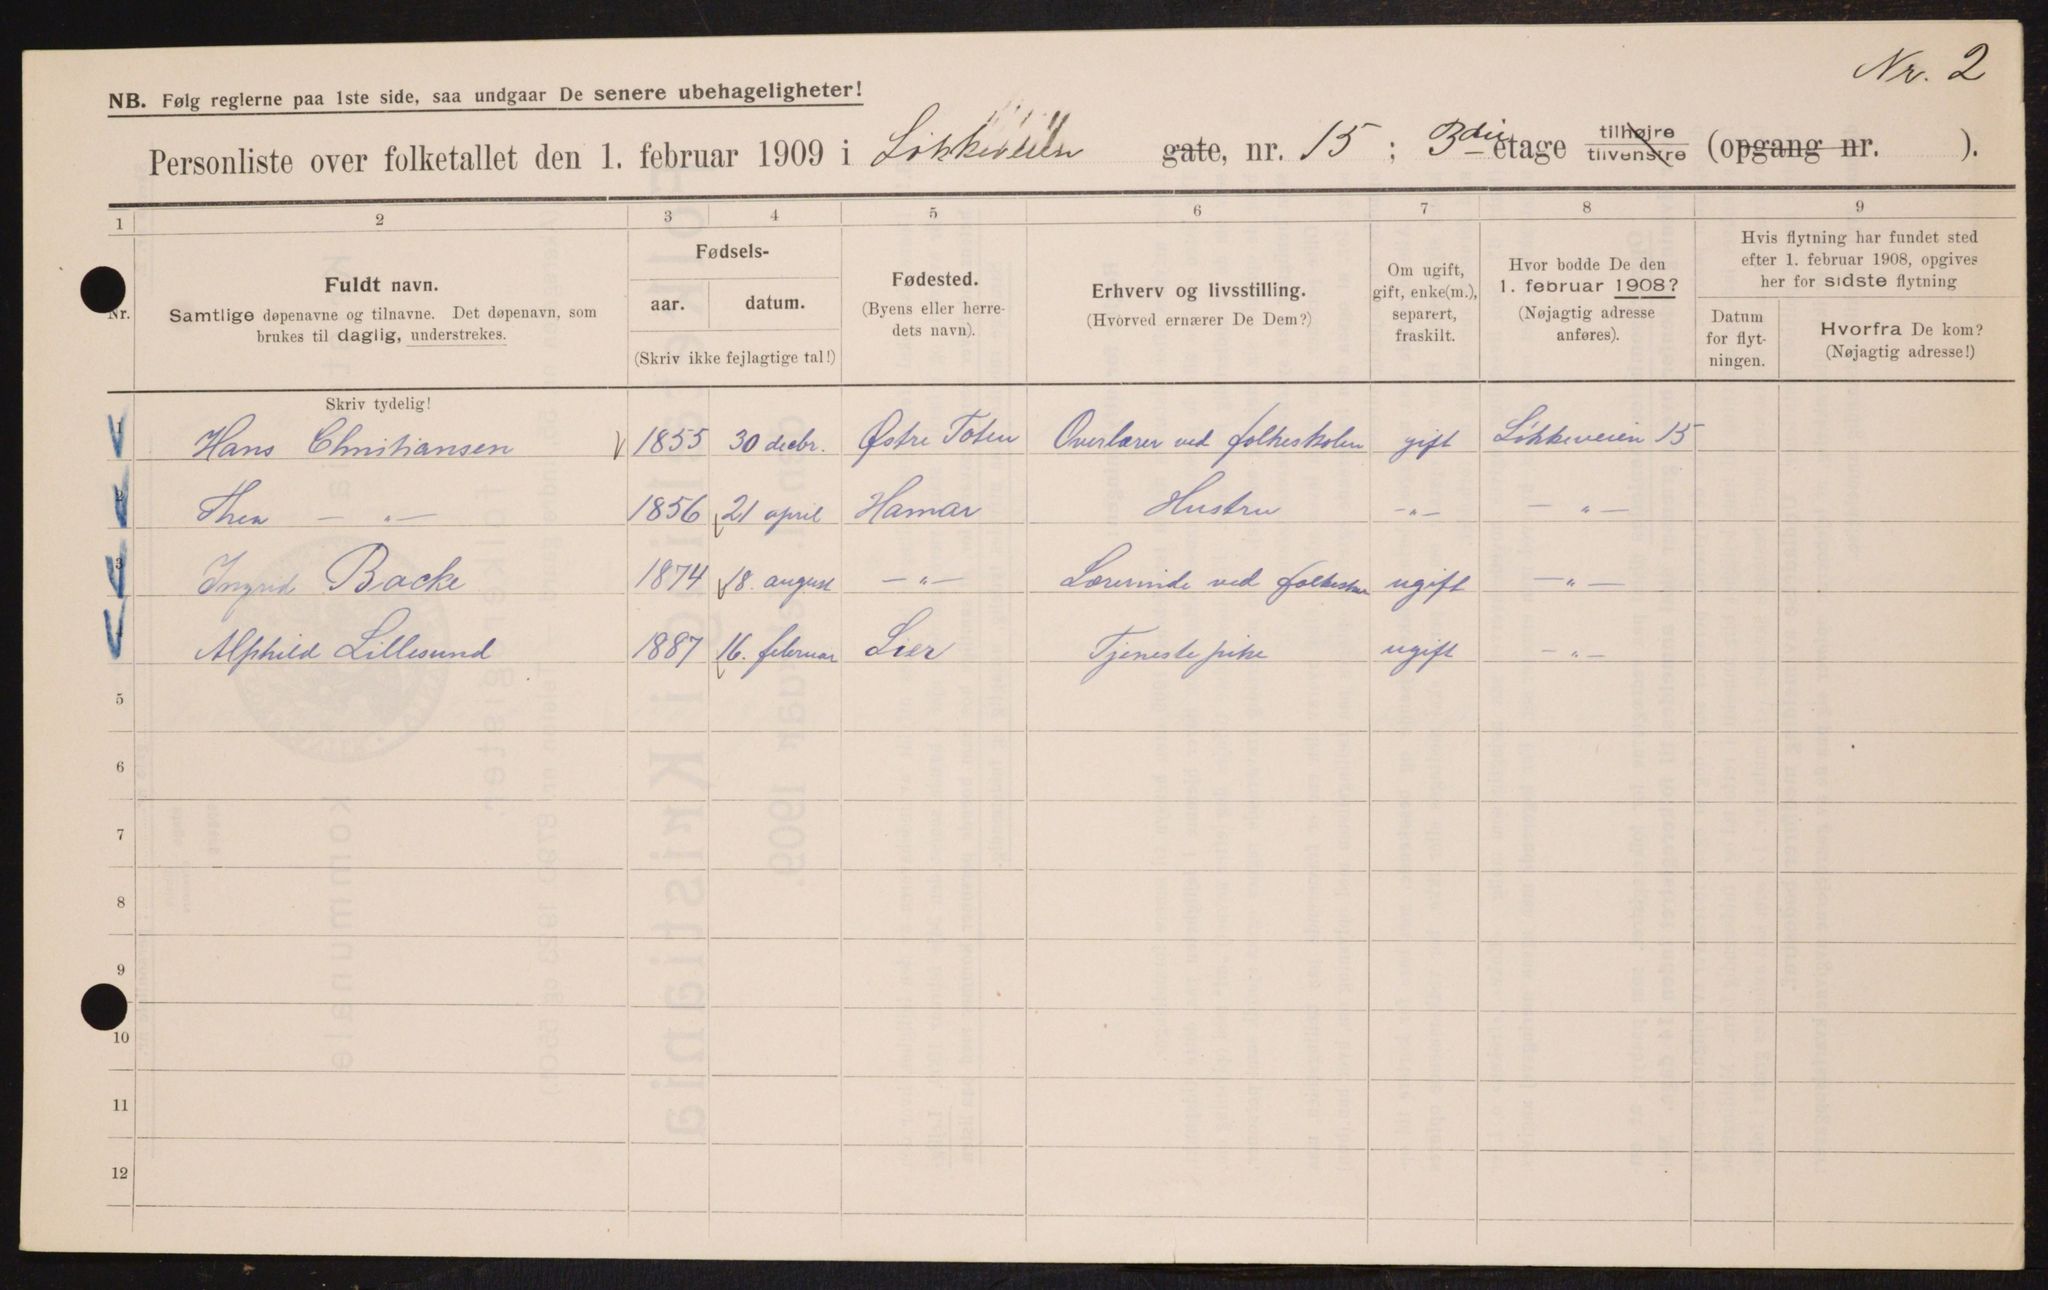 Nr. 2
NB. Følg reglerne paa 1ste side, saa undgaar De senere ubehageligheter!
Personliste over folketallet den 1. februar 1909 i Løkkeveien gate, nr. 15; 3die etage tilhøjre tilvenstre (opgang nr. ).
1 2 3 4 5 6 7 8 9
Nr.
Fuldt navn.
Samtlige døpenavne og tilnavne. Det døpenavn, som
brukes til daglig, understrekes.
Skriv tydelig!
Fødsels-
aar. datum.
(Skriv ikke fejlagtige tal!)
Fødested.
(Byens eller herre-
dets navn).
Erhverv og livsstilling.
(Hvorved ernærer De Dem?)
Om ugift,
gift, enke(m.),
separert,
fraskilt.
Hvor bodde De den
1. februar 1908?
(Nøjagtig adresse
anføres).
Hvis flytning har fundet sted
efter 1. februar 1908, opgives
her for sidste flytning
Datum
for flyt-
ningen.
Hvorfra De kom?
(Nøjagtig adresse!)
1 Hans Christiansen 1855 30 decbr. Østre Toten Overlærer ved folkeskolen gift Løkkeveien 15
2 Thea — „ — 1856 21 april Hamar Hustru — „ — — „ —
3 Ingrid Backe 1874 18. august — „ — Lærerinde ved folkeskn ugift — „ —
Alphild Lillesund 1887 16. februar Lier Tjenestepike ugift — „ —
5
6
7
8
9
10
11
12